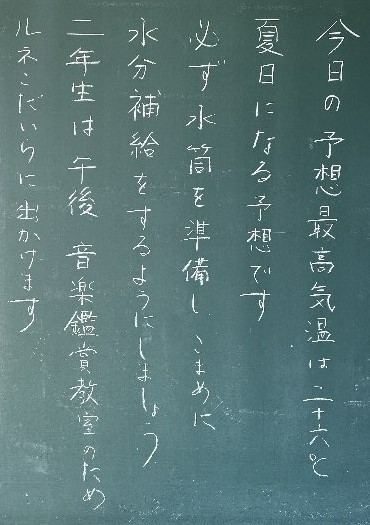 今日の予想最高気温は二十六℃
夏日になる予想です
必ず水筒を準備し こまめに
水分補給をするようにしましょう
二年生は午後 音楽鑑賞教室のため
ルネこだいらに出かけます